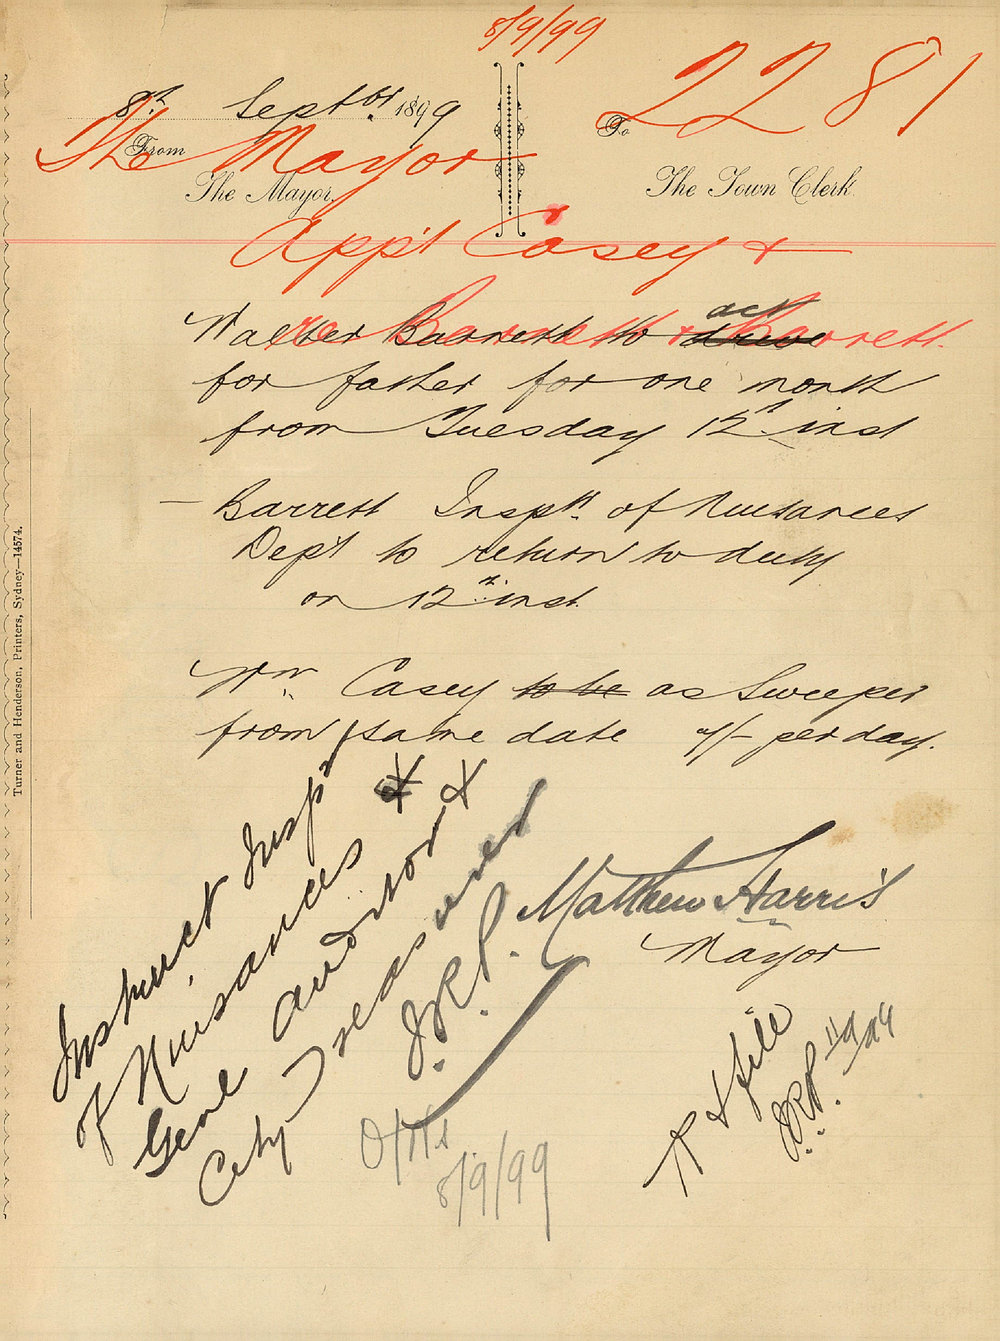 8/9/99
2281
8th Septbr. 1899
The Mayor
From
To
The Mayor,
The Town Clerk
App't Casey &
re Barrett & Barrett.
act
Walter Barrett to drive
for father for one month
from Tuesday 12th inst
— Barrett Inspt. of Nuisances
Dep't to return to duty
on 12th inst.
Wm. Casey to be as Sweeper
from same date per day.
Instruct Inspr
of Nuisances &
Genl Auditor &
City Treasurer
J.R.P.
Matthew Harris
Mayor
8/9/99
R & file
J.R.P. 11/9/99
Turner and Henderson, Printers, Sydney—14574.